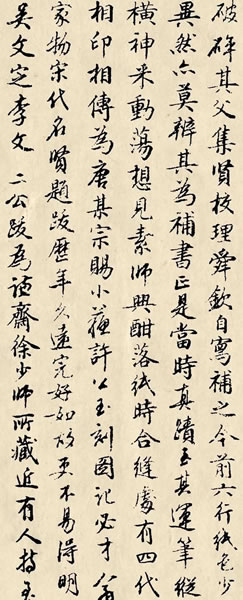 破碎其父集賢校理舜欽自寫補之今前六行紙色少
異然亦莫辨其為補書正是當時真蹟至其運筆縱
橫神采動蕩想見素師興酣落紙時合縫處有四代
相印相傳為唐某宗賜小蘇許公玉刻圖記必才翁
家物宋代名賢題跋歷年久遠完好如故更不易得明
吳文定李文 二公跋為謙齋徐少師所藏近有人持至